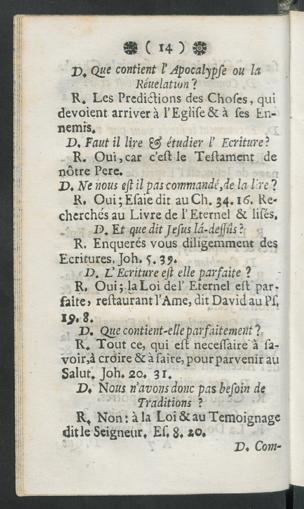 ( 14 )
D. Que contient l'Apocalypse ou la
Révelation?
R. Les Predictions des Choses, qui
devoient arriver à l'Eglise & à ses En-
nemis.
D. Faut il lire & étudier l'Ecriture?
R. Oui, car c'est le Testament de
nôtre Pere.
D. Ne nous est il pas commandé, de la lire?
R. Oui; Esaïe dit au Ch. 34. 16. Re-
cherchés au Livre de l'Eternel & lisés.
D. Et que dit Jesus là-dessus?
R. Enquerés vous diligemment des
Ecritures. Joh. 5. 39.
D. L'Ecriture est elle parfaite?
R. Oui; la Loi de l'Eternel est par-
faite, restaurant l'Ame, dit David au Ps.
19. 8.
D. Que contient-elle parfaitement?
R. Tout ce, qui est necessaire à sa-
voir, à croire & à faire, pour parvenir au
Salut. Joh. 20. 31.
D. Nous n'avons donc pas besoin de
Traditions?
R. Non: à la Loi & au Temoignage
dit le Seigneur. Es. 8. 20.
D. Com-